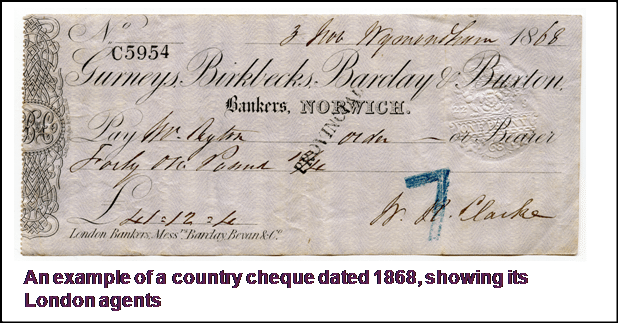 No
C5954
3 Nov Wymondham 1868
Gurneys, Birkbecks, Barclay & Buxton,
Bankers, NORWICH.
PROVINCIAL
Pay Mr order or Bearer
Forty one Pound 12/4
£ 41=12=4
7
W. R. Clarke
London Bankers, Messrs. Barclay, Bevan & Co.
An example of a country cheque dated 1868, showing its
London agents